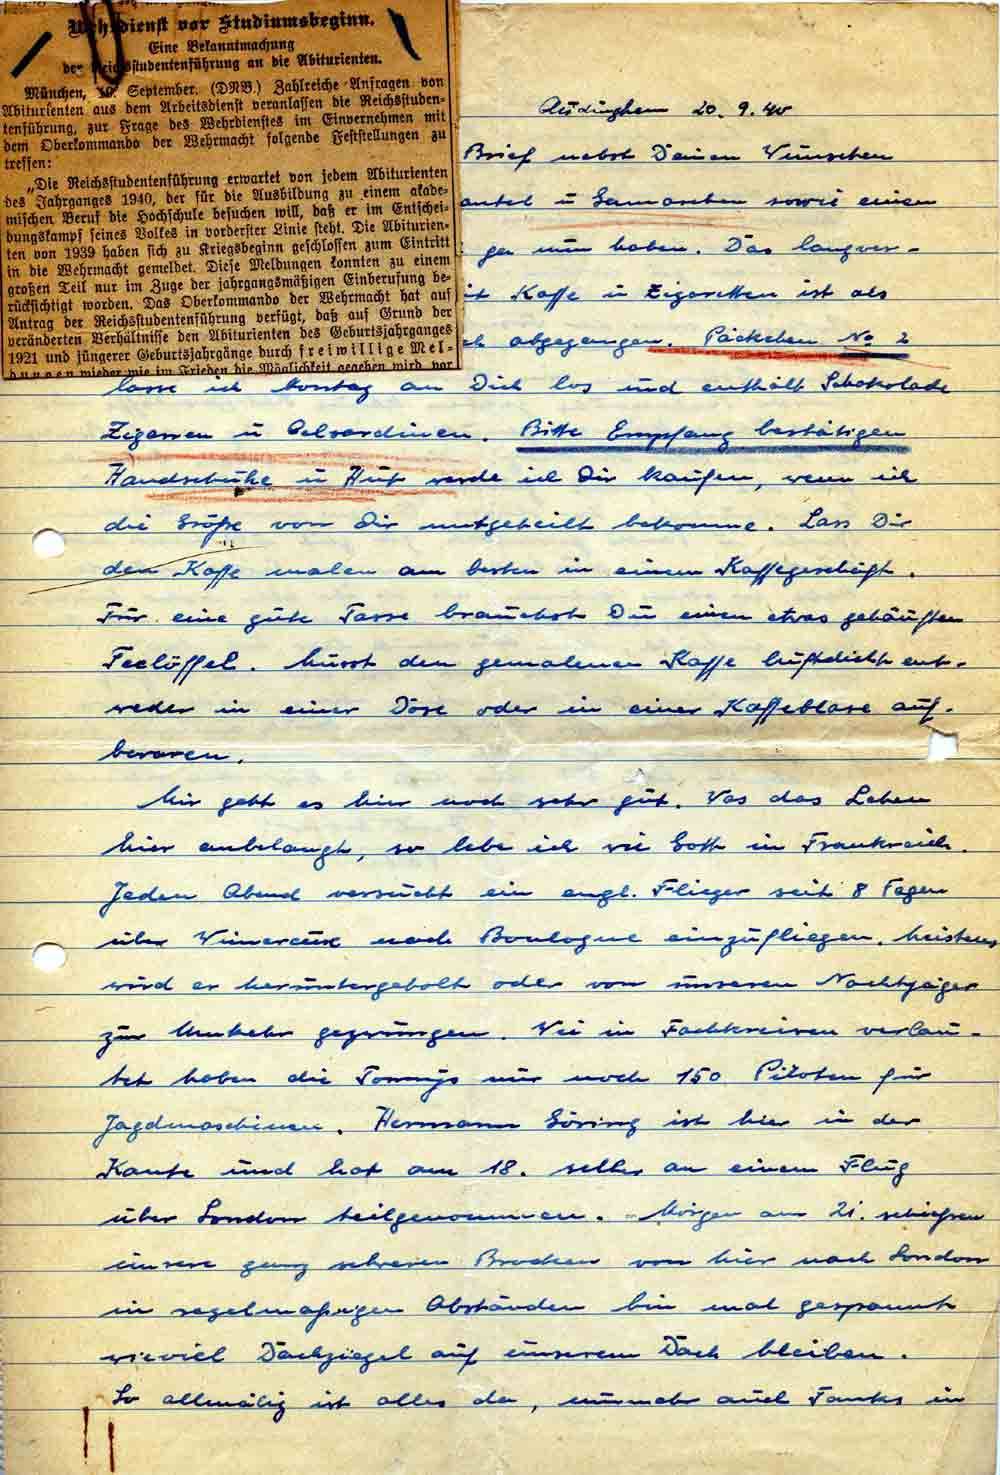 Wehrdienst vor Studiumsbeginn.
Eine Bekanntmachung
der Reichsstudentenführung an die Abiturienten.
München, 19. September. (DNB.) Zahlreiche Anfragen von
Abiturienten aus dem Arbeitsdienst veranlassen die Reichsstuden-
tenführung, zur Frage des Wehrdienstes im Einvernehmen mit
dem Oberkommando der Wehrmacht folgende Feststellungen zu
treffen:
„Die Reichsstudentenführung erwartet von jedem Abiturienten
des Jahrganges 1940, der für die Ausbildung zu einem akade-
mischen Beruf die Hochschule besuchen will, daß er im Entschei-
dungskampf seines Volkes in vorderster Linie steht. Die Abiturien-
ten von 1939 haben sich zu Kriegsbeginn geschlossen zum Eintritt
in die Wehrmacht gemeldet. Diese Meldungen konnten zu einem
großen Teil nur im Zuge der jahrgangsmäßigen Einberufung be-
rücksichtigt worden. Das Oberkommando der Wehrmacht hat auf
Antrag der Reichsstudentenführung verfügt, daß auf Grund der
veränderten Verhältnisse den Abiturienten des Geburtsjahrganges
1921 und jüngerer Geburtsjahrgänge durch freiwillige Mel-
dungen wieder wie im Frieden die Möglichkeit gegeben wird, vor
Audinghen 20.9.40
Brief nebst Deinen Wünschen
antel u Gamaschen sowie einen
gen nun haben. Das langver-
it Kaffe u Zigaretten ist als
ch abgegangen. Päckchen No 2
lasse ich Montag an Dich los und enthält Schokolade
Zigarren u Oelsardinen. Bitte Empfang bestätigen
Handschuhe u Hut werde ich Dir kaufen, wenn ich
die Größe von Dir mitgeteilt bekomme. Lass Dir
den Kaffe malen am besten in einem Kaffegeschäft.
Für eine gute Tasse brauchst Du einen etwas gehäuften
Teelöffel. Musst den gemalenen Kaffe luftdicht ent-
weder in einer Dose oder in einer Kaffeblase auf-
bewaren.
Mir geht es hier noch sehr gut. Was das Leben
hier anbelangt, so lebe ich wie Gott in Frankreich.
Jeden Abend versucht ein engl. Flieger seit 8 Tagen
über Wimereux nach Boulogne einzufliegen. Meistens
wird er heruntergeholt oder von unseren Nachtjäger
zur Umkehr gezwungen. Wie in Fachkreisen verlau-
tet haben die Tommys nur noch 150 Piloten für
Jagdmaschinen. Hermann Göring ist hier in der
Kante und hat am 18. selber an einem Flug
über London teilgenommen. Morgen am 21. schießen
unsere ganz schweren Brocken von hier nach London
in regelmäßigen Abständen bin mal gespannt
wieviel Dachziegel auf unserem Dach bleiben.
So allmälig ist alles da, nunmehr auch Tanks in